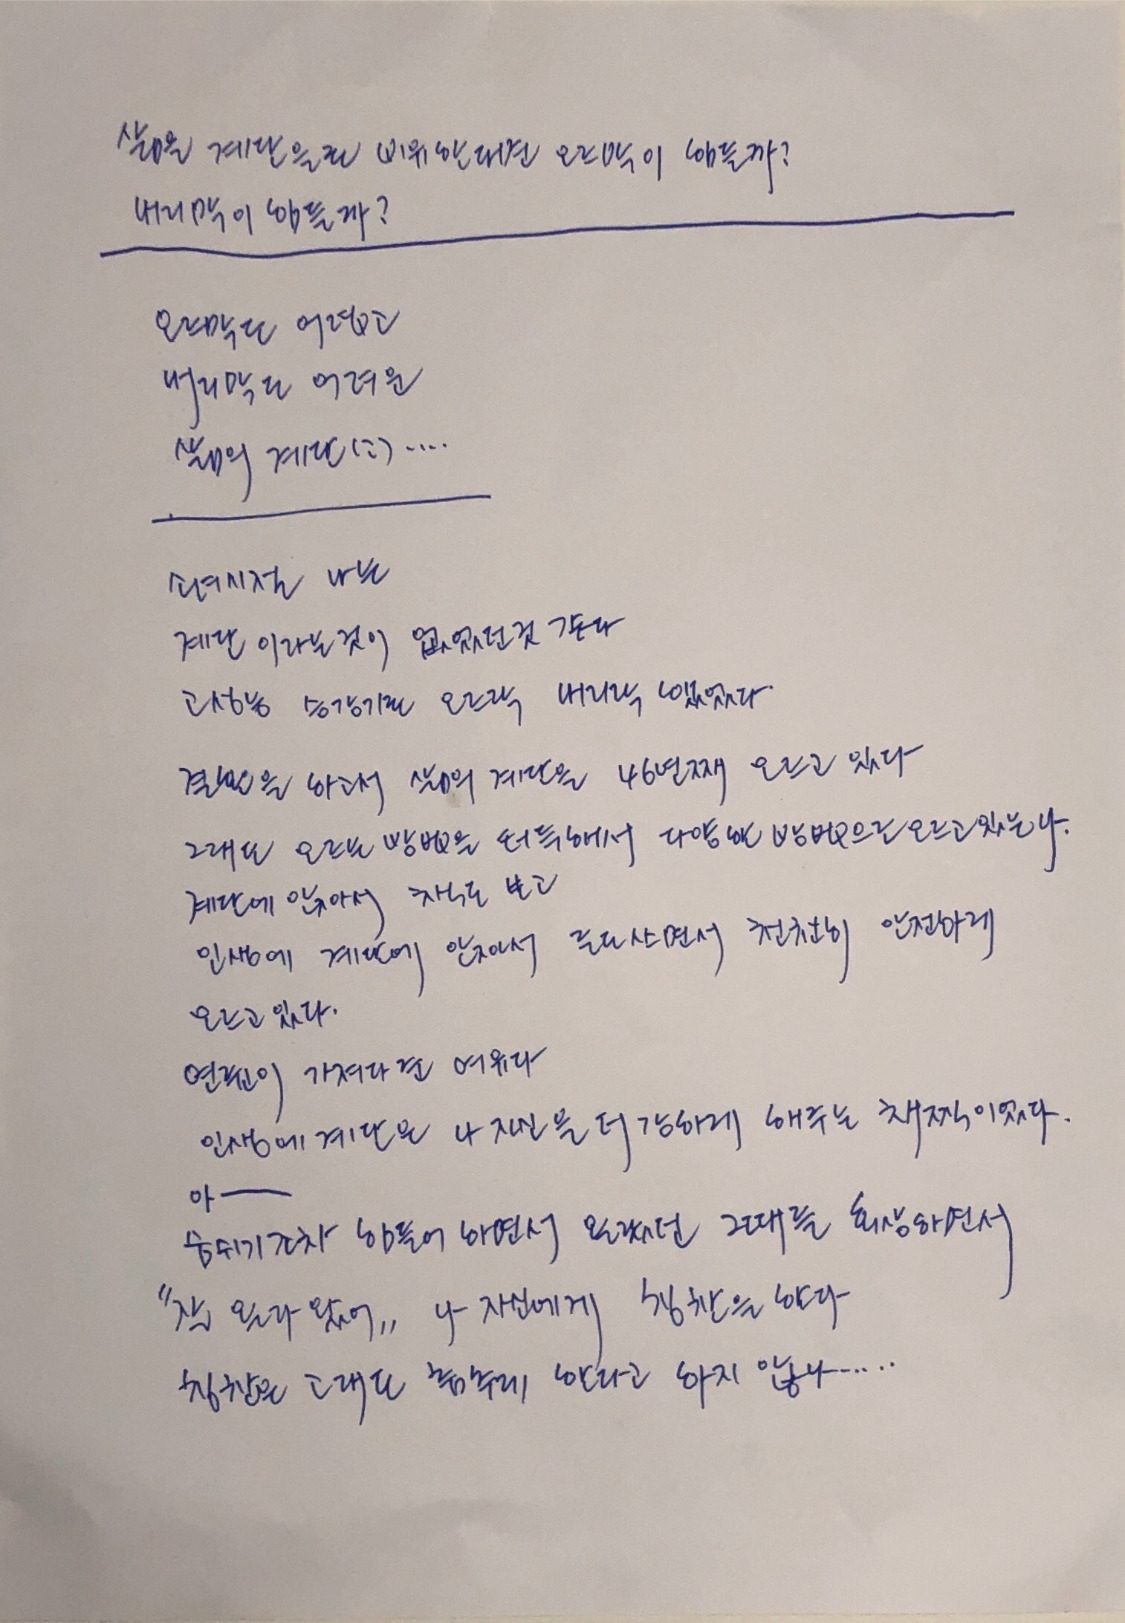 삶을 계단으로 비유한다면 오르막이 힘들까?
내리막이 힘들까?
오르막도 어렵고
내리막도 어려운
삶의 계단(:)....
소녀시절 나는
계단 이라는것이 없었던것 같다
고성능 승강기로 오르락 내리락 했었다.
결혼을 하고서 삶의 계단을 46년째 오르고 있다
그래도 오르는 방법을 터득해서 다양한 방법으로 오르고있는나.
계단에 앉아서 책도 보고
인생에 계단에 앉아서 쉬면서 천천히 안전하게
오르고 있다.
연륜이 가져다준 여유다
인생에 계단은 나 자신을 더 강하게 해주는 채찍이었다.
아—
숨쉬기조차 힘들어 하면서 올랐던 그때를 회상하면서
"잘 올라 왔어" 나 자신에게 칭찬을 한다
칭찬은 고래도 춤추게 한다고 하지 않나.....